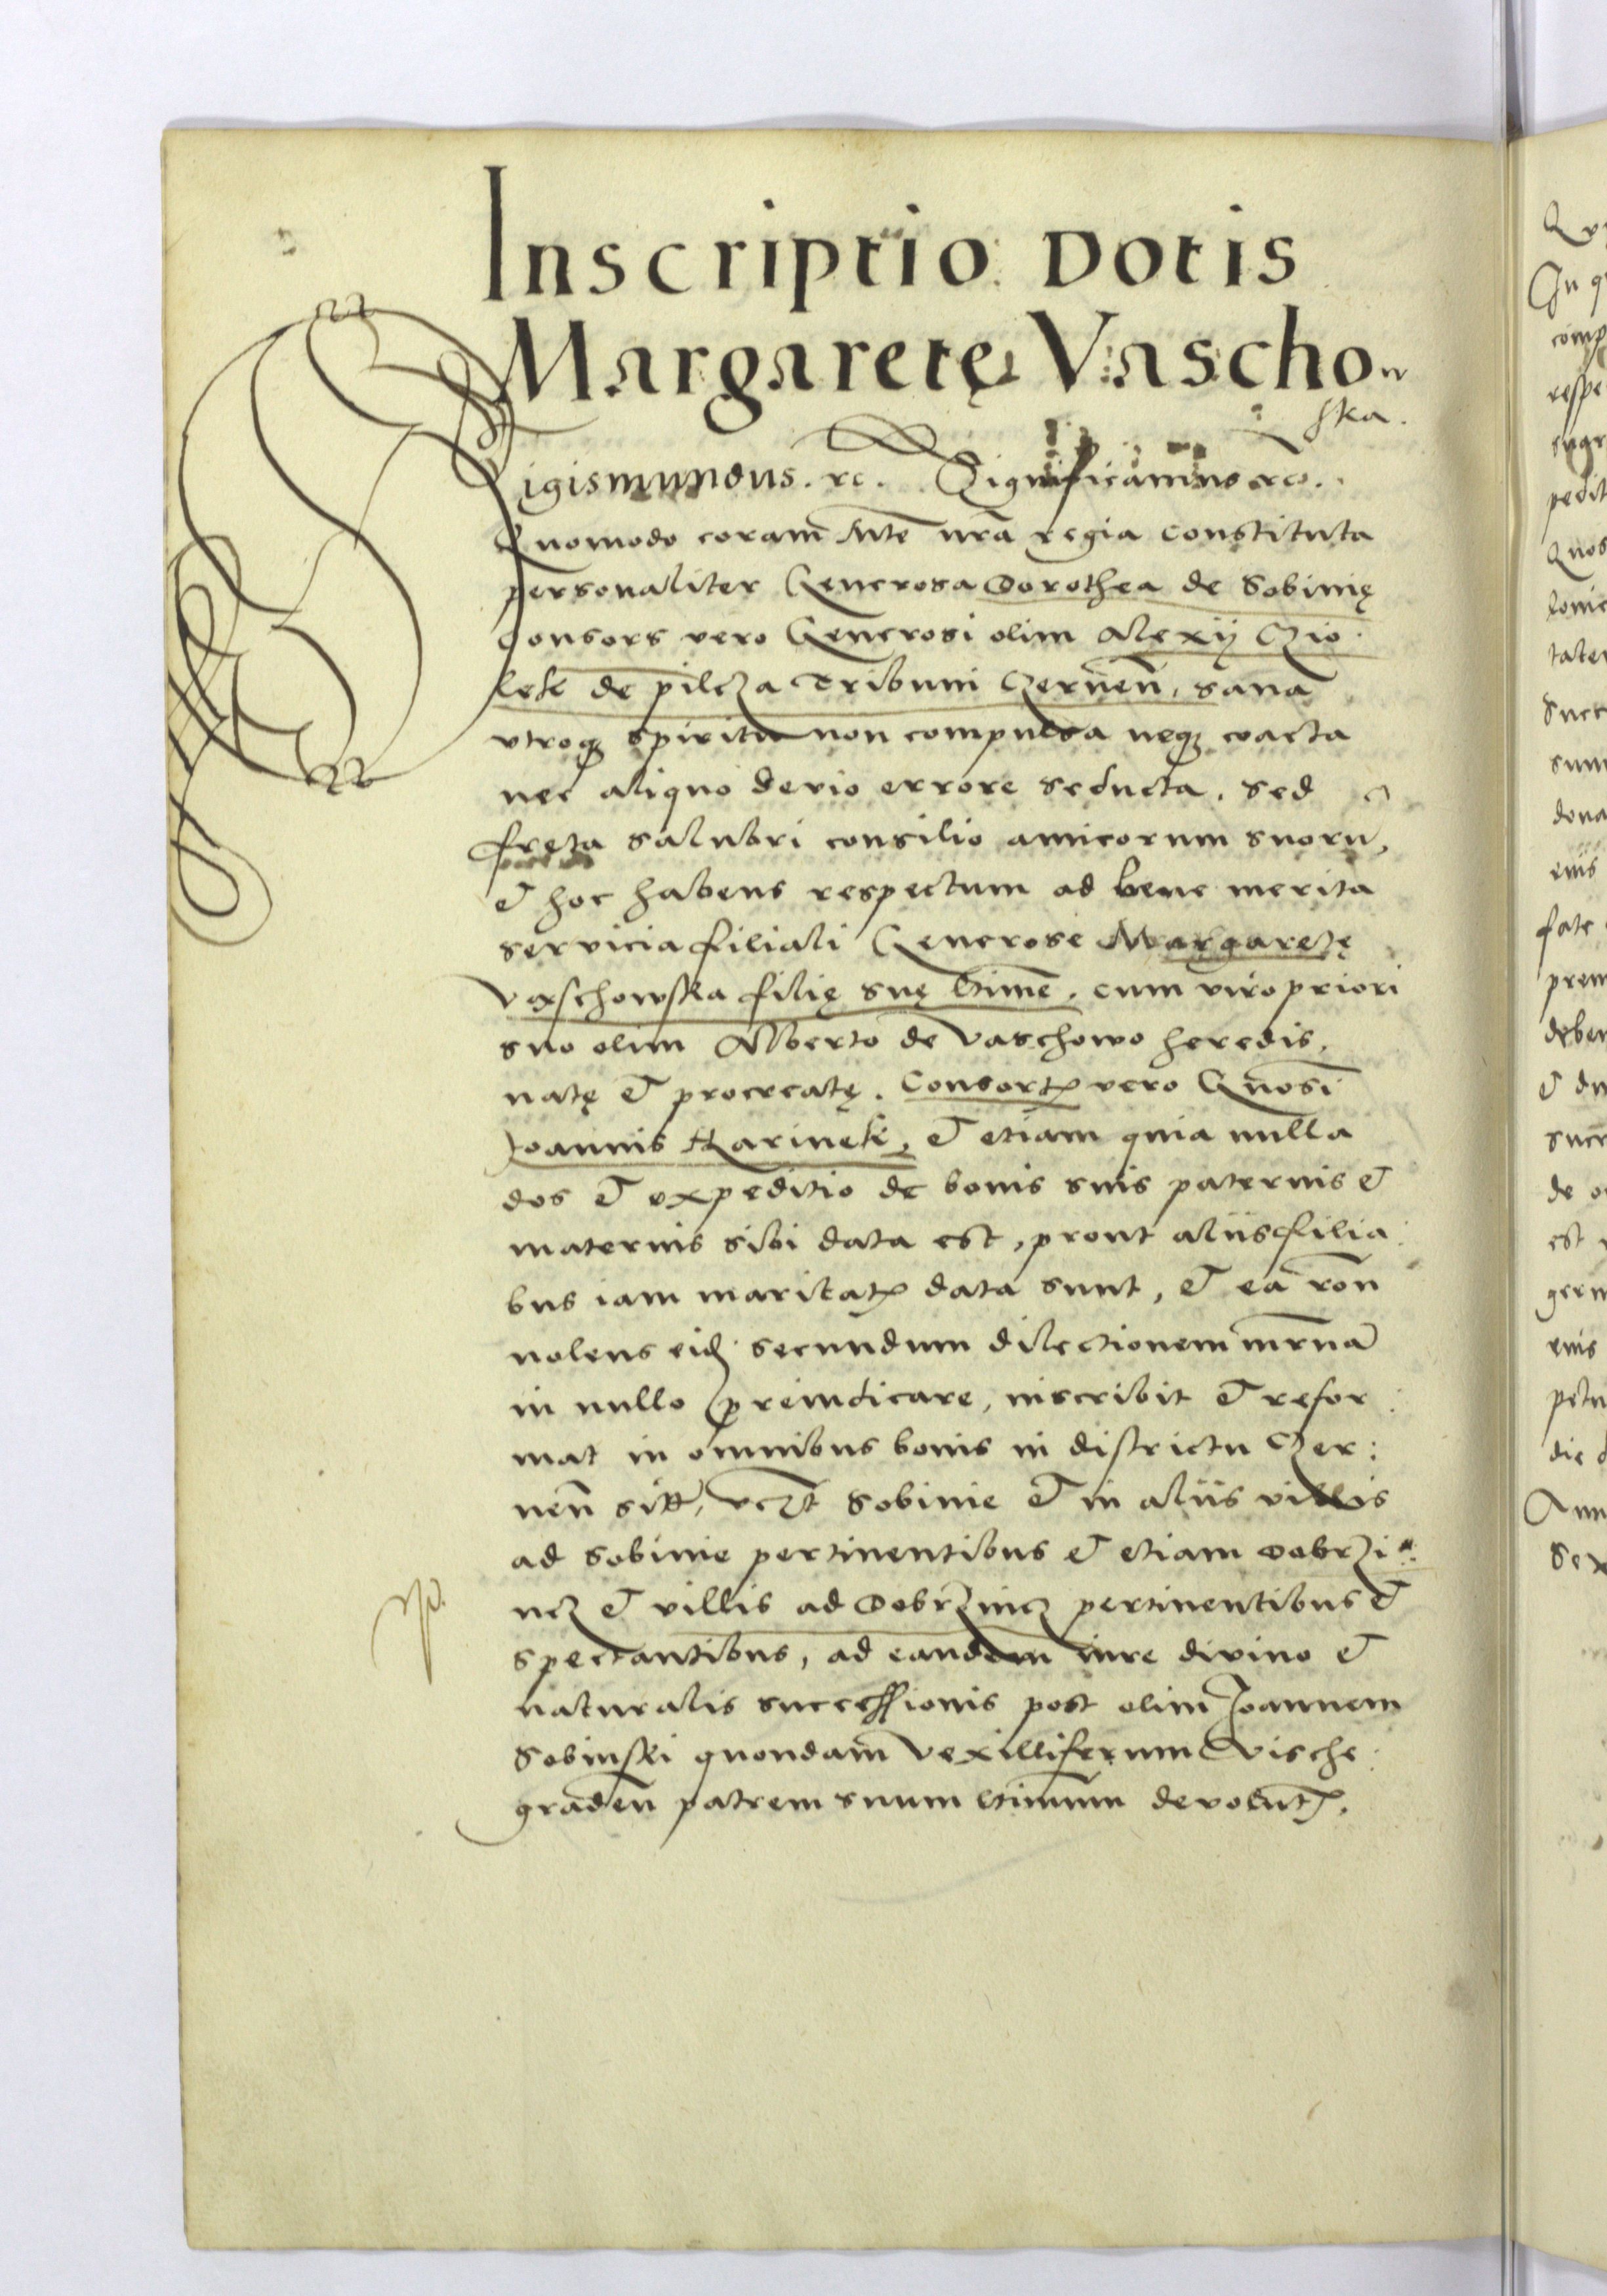 Inscriptio Dotis
Margaretę Vaschow
ska.
Sigismundus. rc. Significamus rc.
Quomodo coram Mte nrã regia constituta
personaliter Generosa Dorothea de Sobinię
consors vero Generosi olim Alexij Czio
lek de pilcza Tribuni Czernen̄, sana
vtroq3 spiritu non compulsa neq3 coacta
nec aliquo devio errore seducta. sed
fręta salubri consilio amicorum suorū,
et hoc habens respectum ad bene merita
servicia filiali Generose Margaretę
Vaschowska filię suę gnē, cum viro priori
suo olim Alberto de Vaschowo heredis,
natę et procreatę. Consortis vero Gnosi
Joannis Karinski, et etiam quia nulla
dos et expeditio de bonis suis paternis et
maternis sibi data est, prout aliis filia
bus iam maritatis data sunt, et ea rōn
nolens eid. secundum dilectionem mrnã
in nullo preiudicare, inscribit et refor
mat in omnibus bonis in districtu Czer:
nen̄ sitis, vcꝫt Sobinie et in aliis villis
ad Sobinie pertinentibus et etiam Dobrzi
ncz et villis ad Dobrzincz pertinentibus et
spectantibus, ad eandem iure divino et
naturalis successionis post olim Joannem
Sobinski quondam Vexilliferum Wische
graden̄ patrem suum gnmum devolutis.